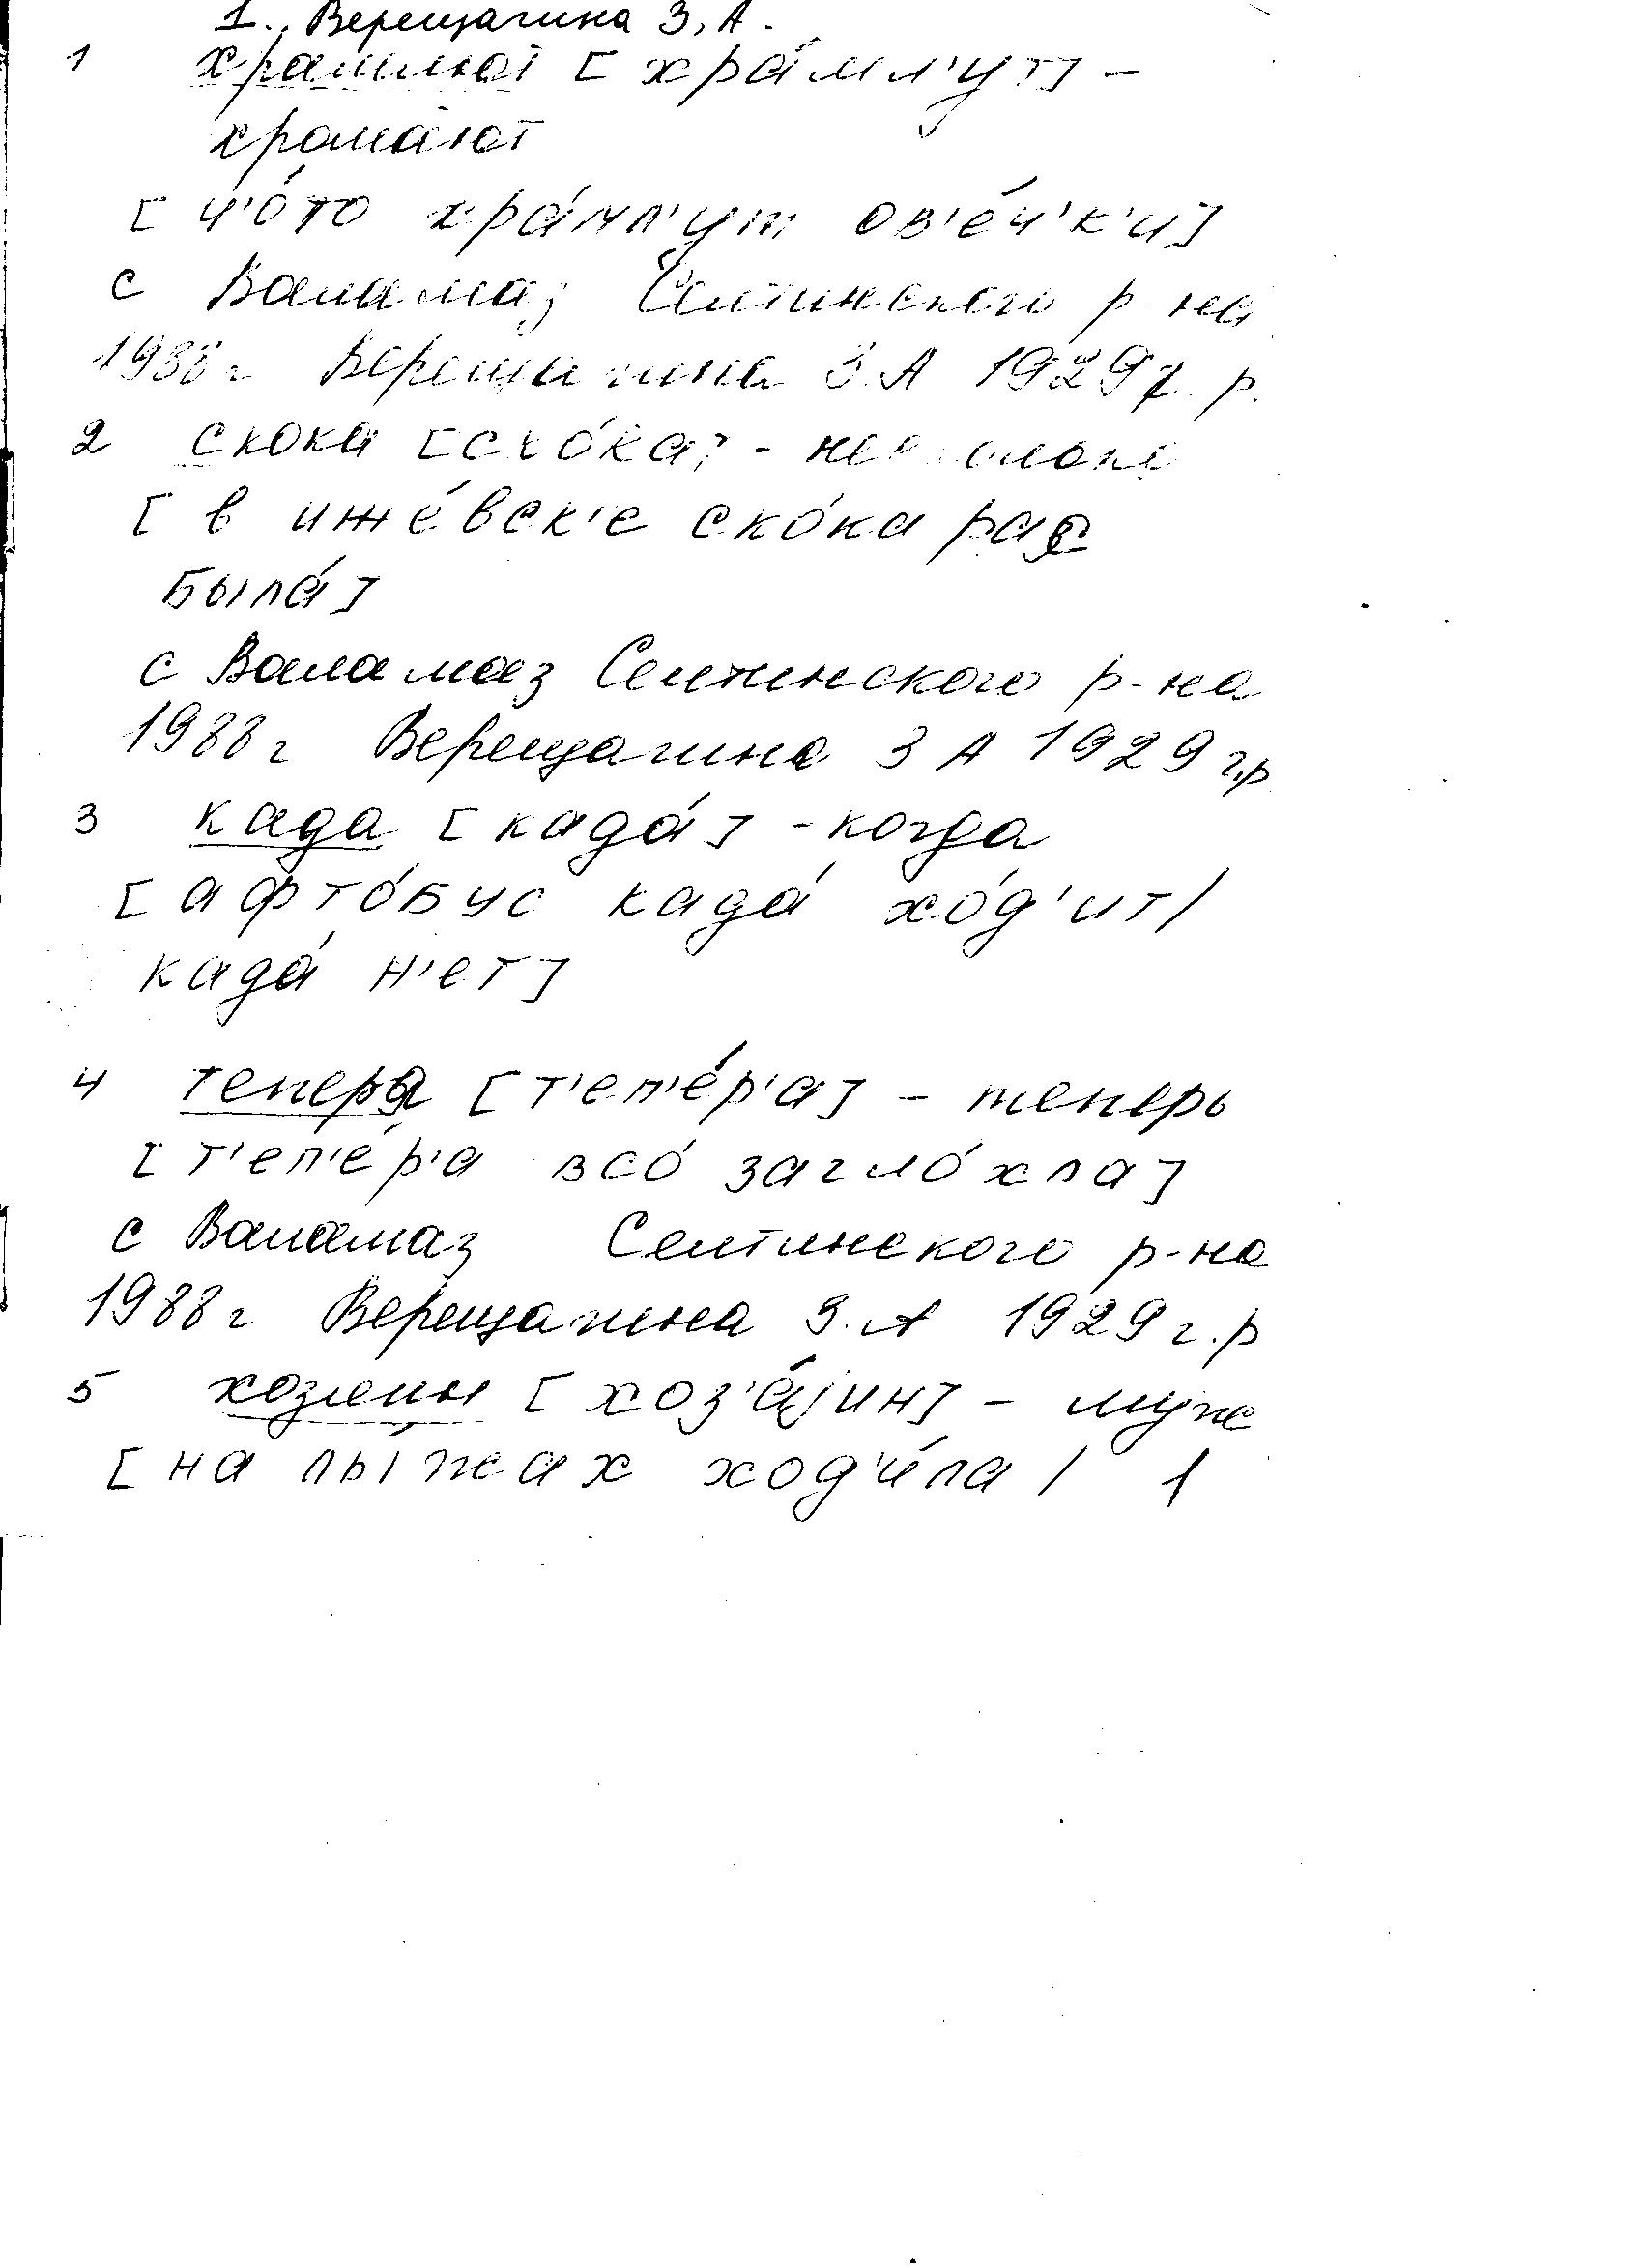 1. Верещагина З, А.
1 храмлют [хра́мл'ут] –
хрома́ют
[ч'о́то хра́мл'ут ов'е́ч'к'и]
с Валамаз Селтинского р-на
1988г Верещагина З.А 1929г.р.
2 скока [ско́ка] -
[в иже́вск'е ско́ка рас
была́]
с Валамаз Селтинского р-на
1988г Верещагина З А 1929г.р
3 када [када́] - когда
[афто́бус када́ хо́д'ит/
када́ н'ет]
4 теперя [т'еп'е́р'а] – теперь
[т'еп'е́р'а всо́ загло́хла]
с Валамаз Селтинского р-на
1988г Верещагина З.А 1929г.р
5 хозяин [хоз'а́jин] – муж
[на лыжах ход'и́ла / 1